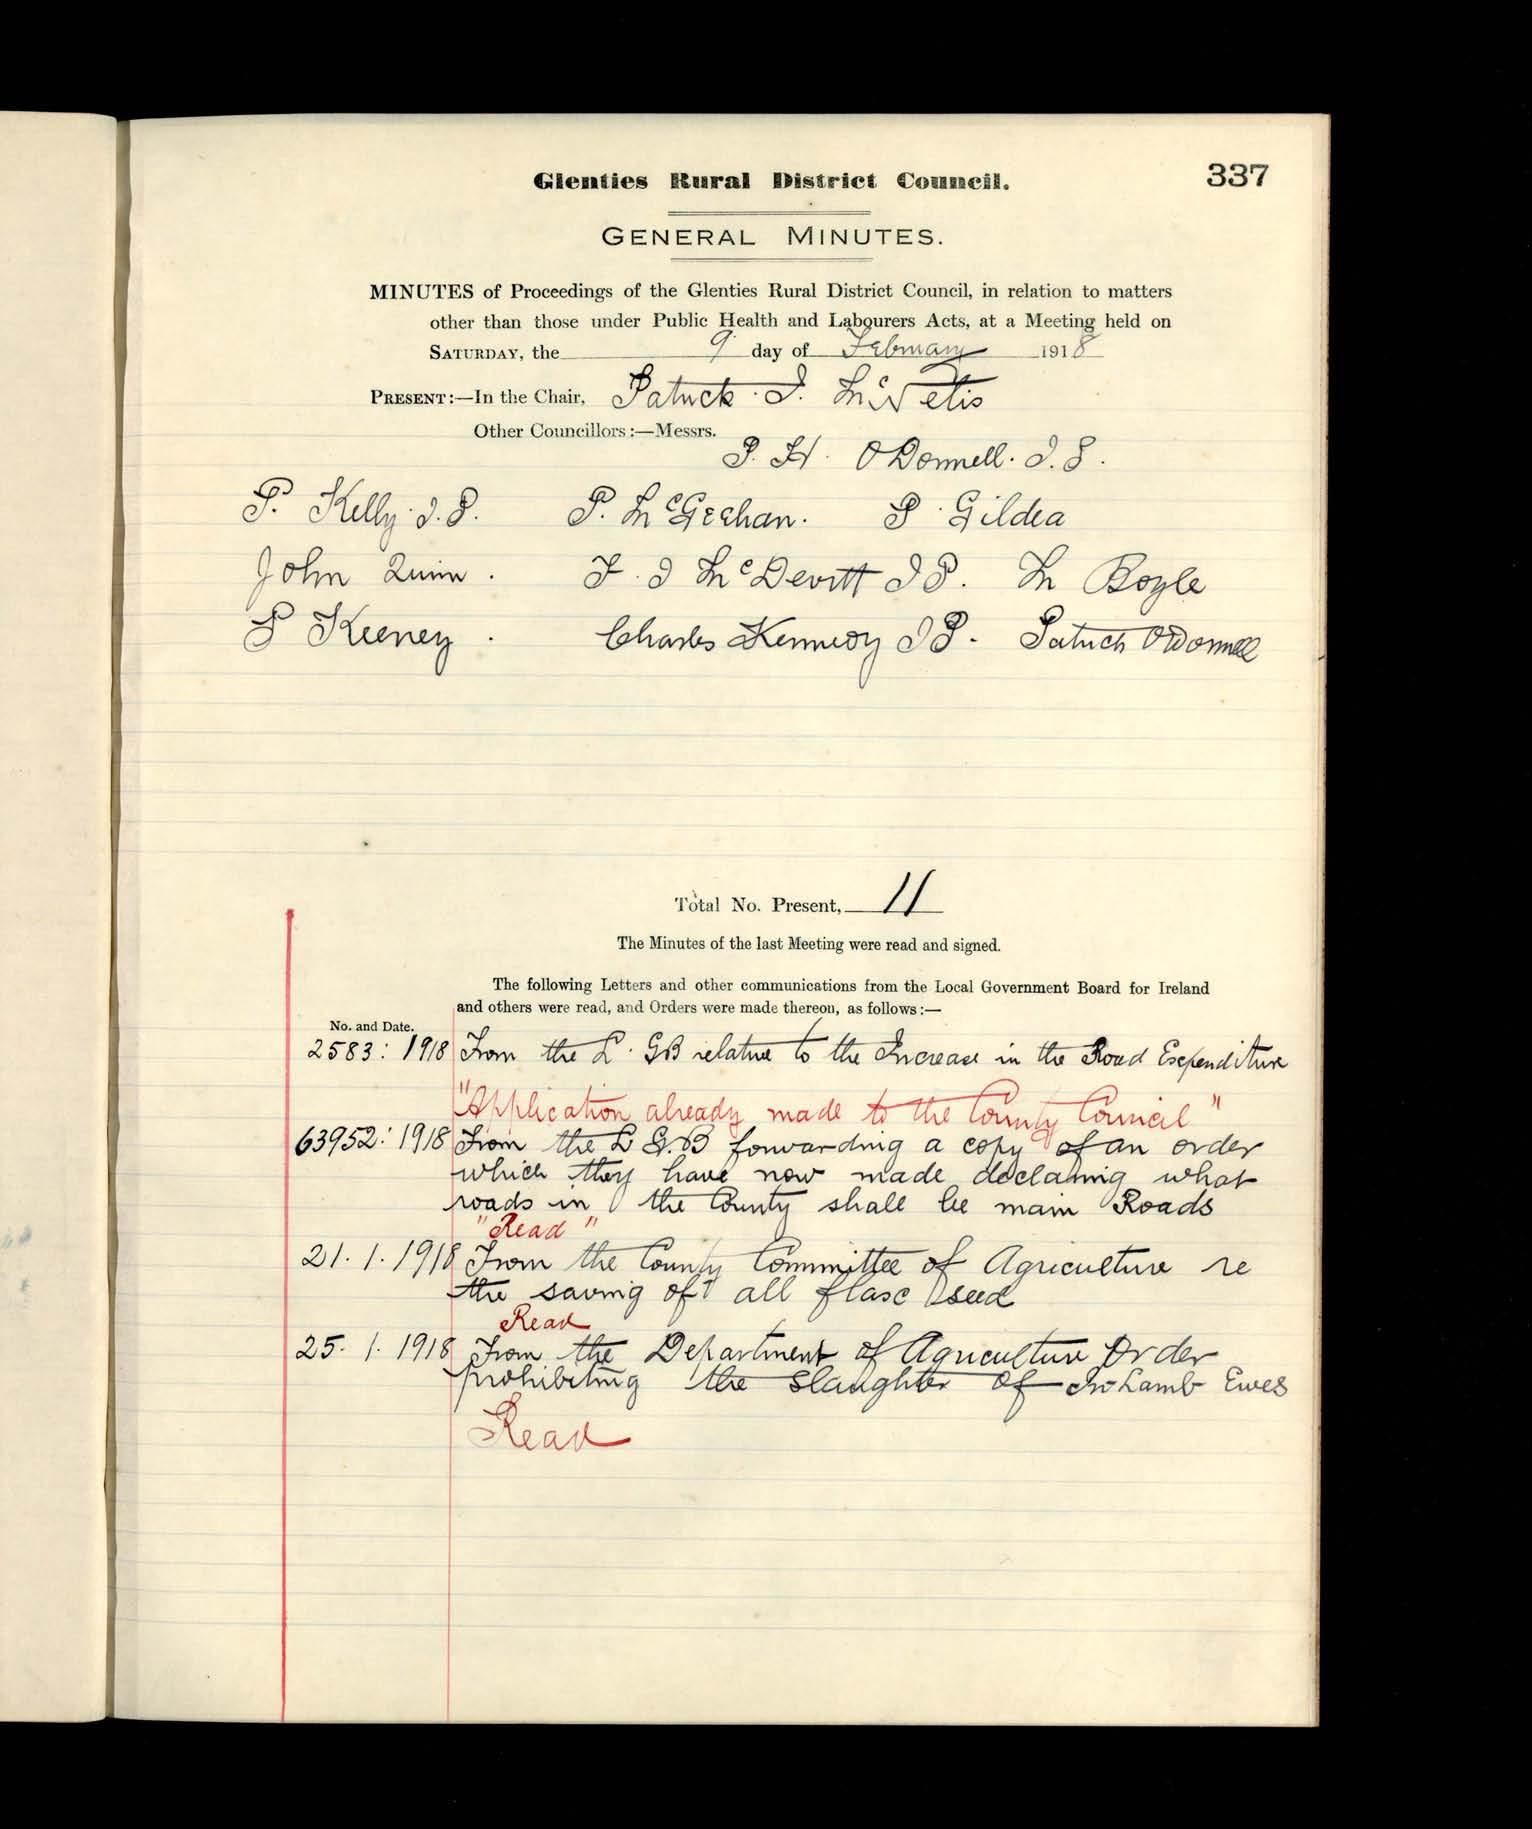 337
Glenties Rural District Council.
GENERAL MINUTES.
MINUTES of Proceedings of the Glenties Rural District Council, in relation to matters
other than those under Public Health and Labourers Acts, at a Meeting held on
SATURDAY, the 9 day of February 1918
PRESENT:—In the Chair, Patrick J.
Other Councillors:—Messrs.
P. H. O'Donnell. J.P.
P. Kelly. J.P. P. McGeehan. P Gildea
John Quinn. F. J McDevitt JP. M Boyle
P Keeney. Charles Kennedy JP. Patrick O'Donnell
Total No. Present, 11
The Minutes of the last Meeting were read and signed.
The following Letters and other communications from the Local Government Board for Ireland
and others were read, and Orders were made thereon, as follows:—
No. and Date.
2583: 1918 From the L. GB relative to the Increase in the Road Expenditure
"Application already made to the County Council"
63952: 1918 From the L G.B forwarding a copy of an order
which they have now made declaring what
roads in the County shall be main Roads
"Read"
21. 1. 1918 From the County Committee of Agriculture re
the saving of all flax seed
Read
25. 1. 1918 From the Department of Agriculture Order
prohibiting the slaughter of In Lamb Ewes
Read